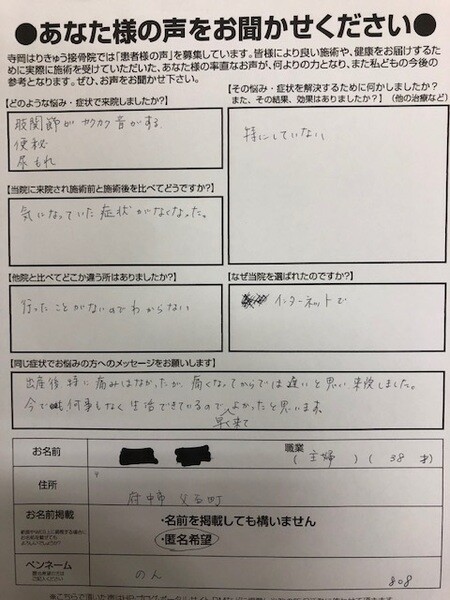 ●あなた様の声をお聞かせください●
寺岡はりきゅう接骨院では「患者様の声」を募集しています。皆様により良い施術や、健康をお届けするた
めに実際に施術を受けていただいた、あなた様の率直なお声が、何よりの力となり、また私どもの今後の
参考となります。ぜひ、お声をお聞かせ下さい。
【どのような悩み・症状で来院しましたか?】
股関節がカクカク音がする
便秘
尿もれ
【その悩み・症状を解決するために何かしましたか?
また、その結果、効果はありましたか?】(他の治療など)
特にしていない
【当院に来院され施術前と施術後を比べてどうですか?】
気になっていた症状がなくなった。
【他院と比べてどこか違う所はありましたか?】
行ったことがないのでわからない
【なぜ当院を選ばれたのですか?】
インターネットで
【同じ症状でお悩みの方へのメッセージをお願いします】
出産後特に痛みはなかったが、痛くなってからでは遅いと思い来院しました。
今では何事もなく生活できているので早く来てよかったと思います。
お名前
職業
(主婦)(38才)
住所
〒
府中市
お名前掲載
・名前を掲載しても構いません
・匿名希望
ペンネーム
のん
808